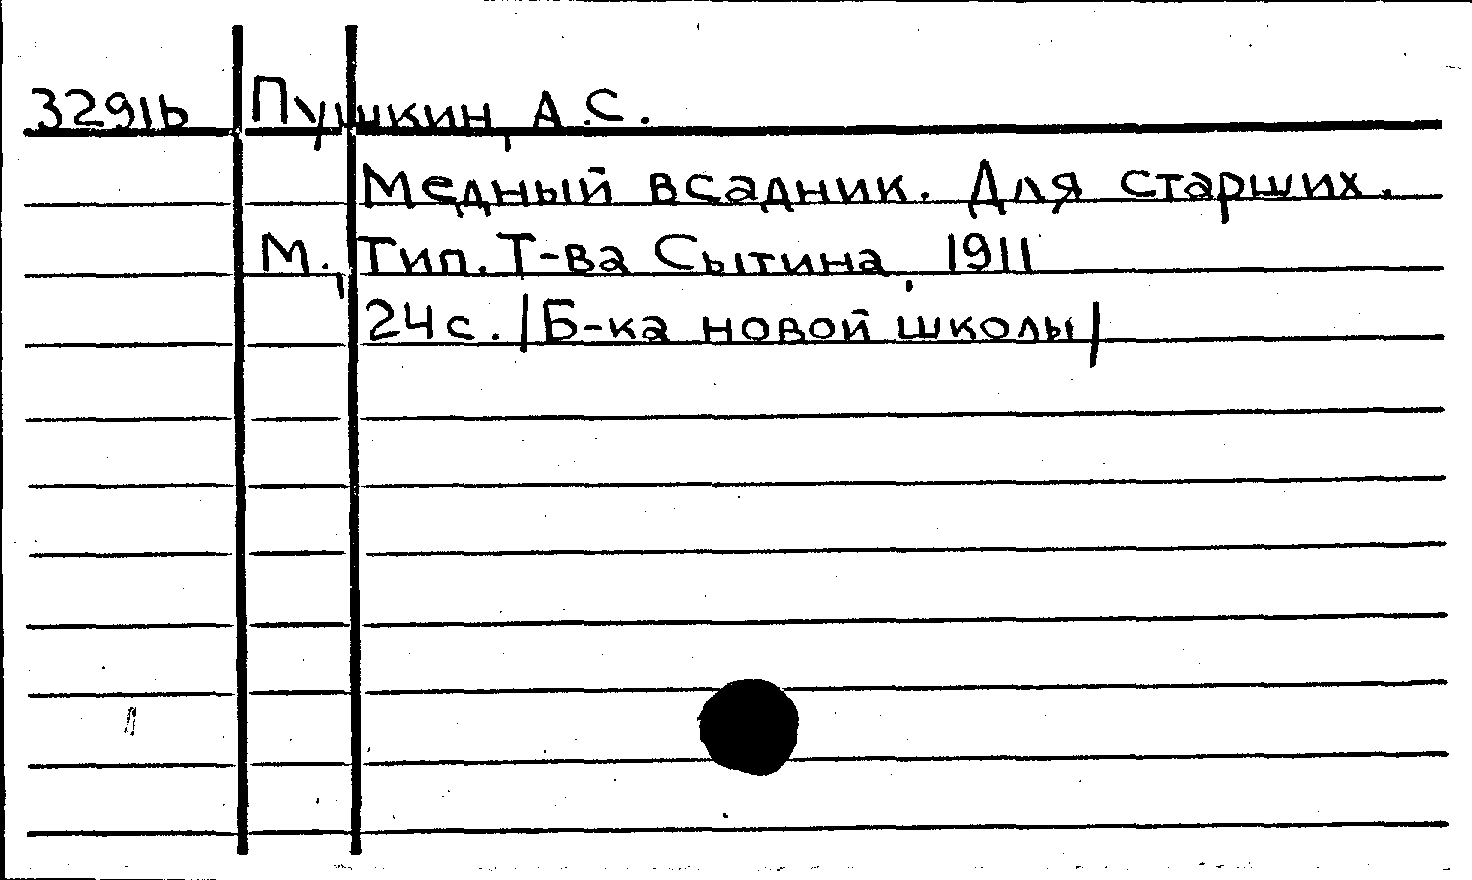 3291ь Пушкин, А.С.
Медный всадник. Для старших.
М., Тип. Т-ва Сытина, 1911
24с. /Б-ка новой школы/